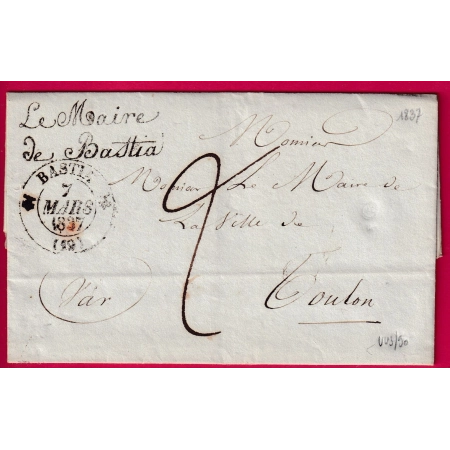 Le Maire
de Bastia
1837
BASTIA
7
MARS
1837
(19)
2
Monsieur
Monsieur Le Maire de
La Ville de
Toulon
Var